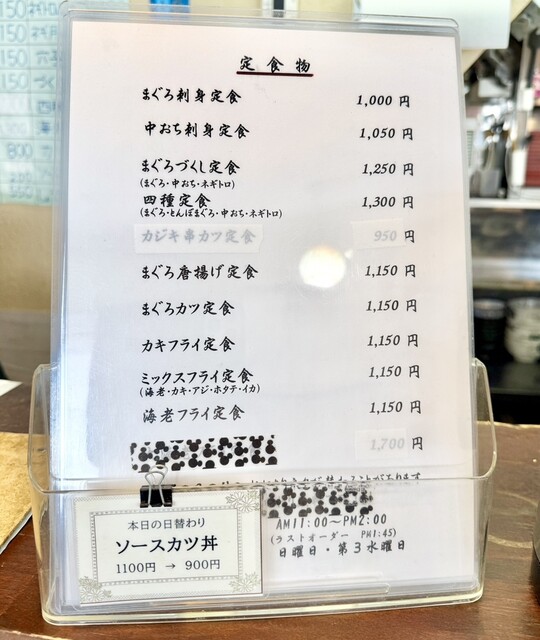 定食物
まぐろ刺身定食 1,000 円
中おち刺身定食 1,050 円
まぐろづくし定食 1,250 円
(まぐろ・中おち・ネギトロ)
四種定食 1,300 円
(まぐろ・とんぼまぐろ・中おち・ネギトロ)
カジキ串カツ定食 950 円
まぐろ唐揚げ定食 1,150 円
まぐろカツ定食 1,150 円
カキフライ定食 1,150 円
ミックスフライ定食 1,150 円
(海老・カキ・アジ・ホタテ・イカ)
海老フライ定食 1,150 円
1,700 円
わることがあります
AM11:00～PM2:00
(ラストオーダー PM1:45)
日曜日・第3水曜日
本日の日替わり
ソースカツ丼
1100円 → 900円